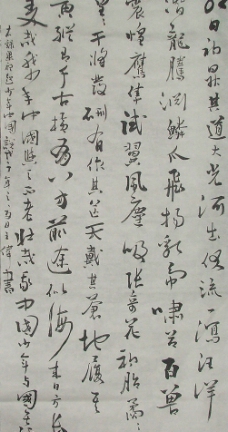 红日初昇其道大光河出伏流一瀉汪洋
潜龍騰渊鳞爪飛揚乳虎嘯谷百獸
震惶鷹隼試翼風塵吸張奇花初胎矞々
皇々干將發硎有作其芒天戴其蒼地履其
黄縱有千古横有八荒前途似海来日方長
美哉我少年中國與天不老壯哉我中國少年與國無疆
梁啓超少年中國説